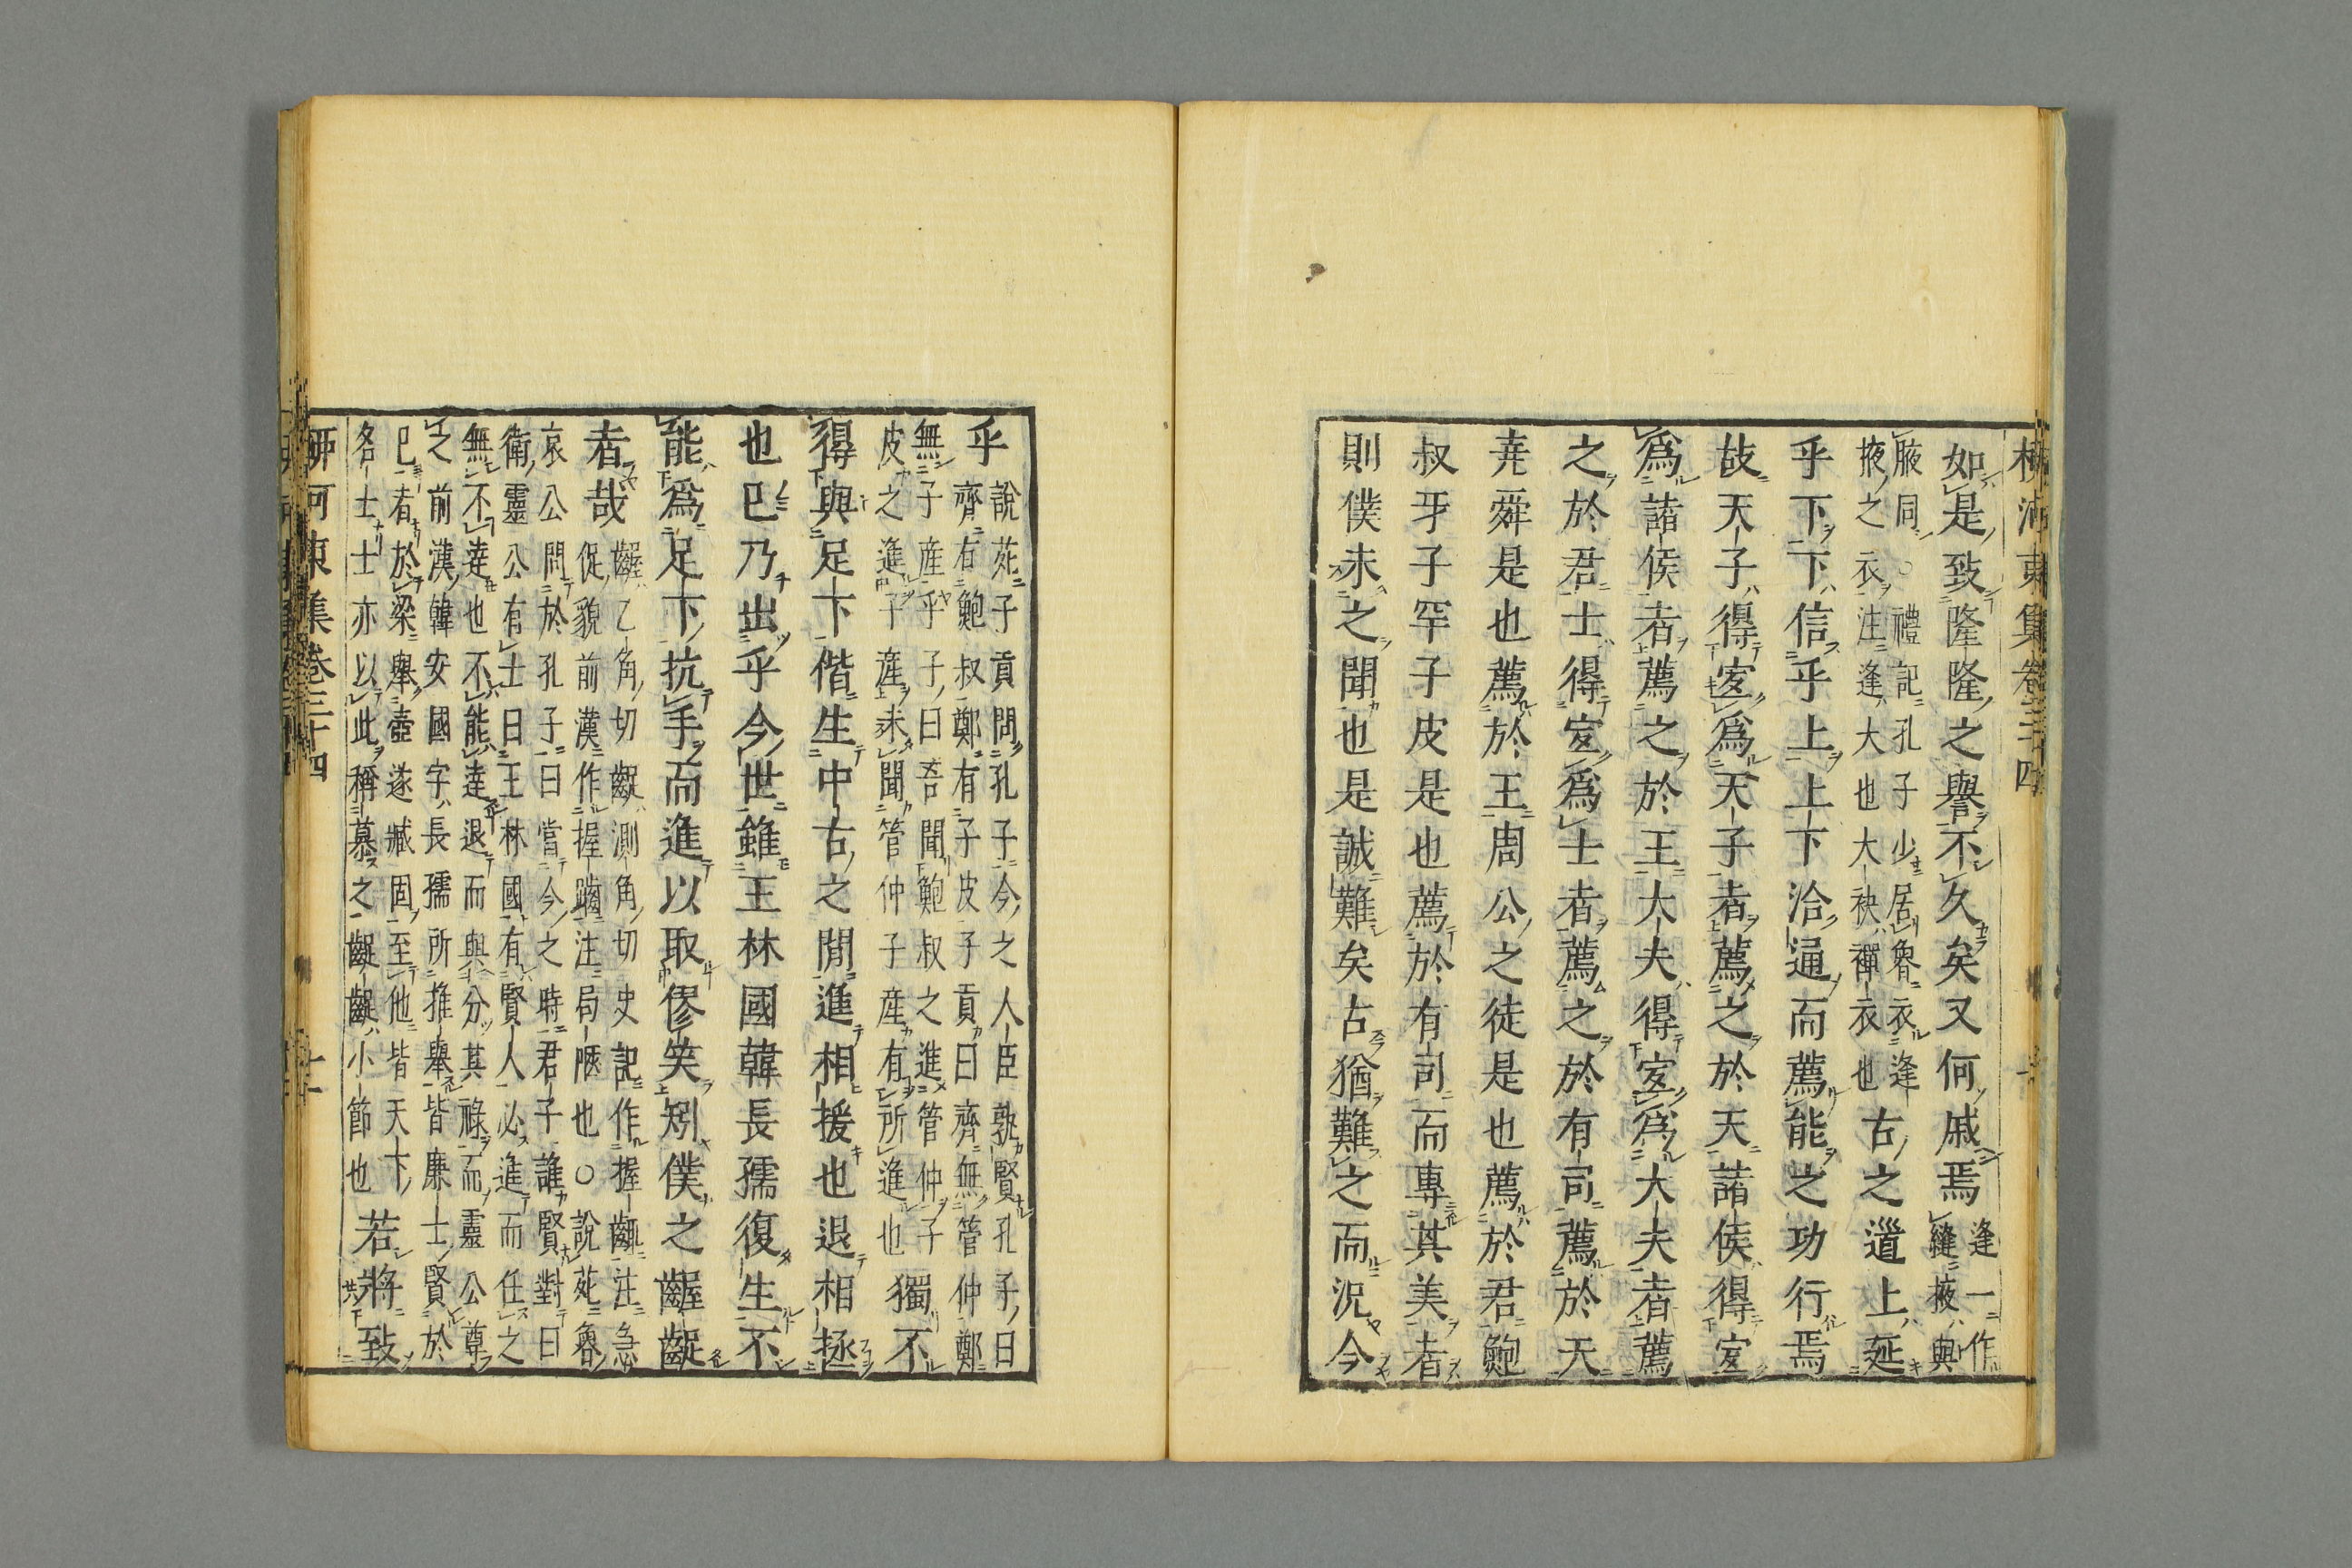 柳河東集卷三十四
如是致隆隆之譽不久矣又何戚焉逢一作
縫掖與
腋同○禮記孔子少居魯衣逢
掖之衣注逢大也大袂襌衣也
古之道上延
乎下下信乎上上下洽通而薦能之功行焉
故天子得宐爲天子者薦之於天諸侯得宐
爲諸侯者薦之於王大夫得宐爲大夫者薦
之於君士得宐爲士者薦之於有司薦於天
堯舜是也薦於王周公之徒是也薦於君鮑
叔牙子罕子皮是也薦於有司而專其美者
則僕未之聞也是誠難矣古猶難之而況今
乎
說苑子貢問孔子今之人臣孰賢孔子曰
齊有鮑叔鄭有子皮子貢曰齊無管仲鄭
無子産乎子曰吾聞鮑叔之進管仲子
皮之進子産未聞管仲子産有所進也
獨不
得與足下偕生中古之閒進相援也退相拯
也已乃出乎今世雖王林國韓長孺復生不
能爲足下抗手而進以取僇笑矧僕之齷齪
者哉
齷乙角切齪測角切史記作握齱注急
促貌前漢作握齱注局陿也○說苑魯
哀公問於孔子曰當今之時君子誰賢對曰
衛靈公有士曰王林國有賢人必進而任之
無不達也不能達退而與分其祿而靈公尊
之前漢韓安國字長孺所推舉皆廉士賢於
已者於梁舉壺遂臧固至他皆天下
名士士亦以此稱慕之齪齪小節也
若將致
柳河東集卷三十四